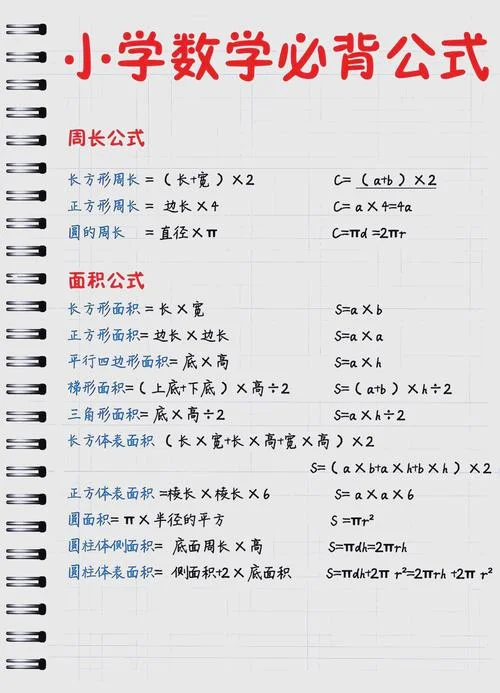 小学数学必背公式
周长公式
长方形周长 = (长+宽) × 2 C= (a+b) × 2
正方形周长 = 边长 × 4 C= a × 4=4a
圆的周长 = 直径 × π C=πd =2πr
面积公式
长方形面积 = 长 × 宽 S=a × b
正方形面积= 边长 × 边长 S=a × a
平行四边形面积= 底 × 高 S=a × h
梯形面积= (上底+下底) × 高÷2 S=(a+b) × h÷2
三角形面积= 底 × 高÷2 S=a × h÷2
长方体表面积 (长 × 宽+长 × 高+宽 × 高) × 2
S=(a × b+a × h+b × h) × 2
正方体表面积 =棱长 × 棱长 × 6 S= a × a × 6
圆面积= π × 半径的平方 S =πr²
圆柱体侧面积= 底面周长 × 高 S=πdh=2πrh
圆柱体表面积= 侧面积+2 × 底面积 S=πdh+2π r²=2πrh +2π r²